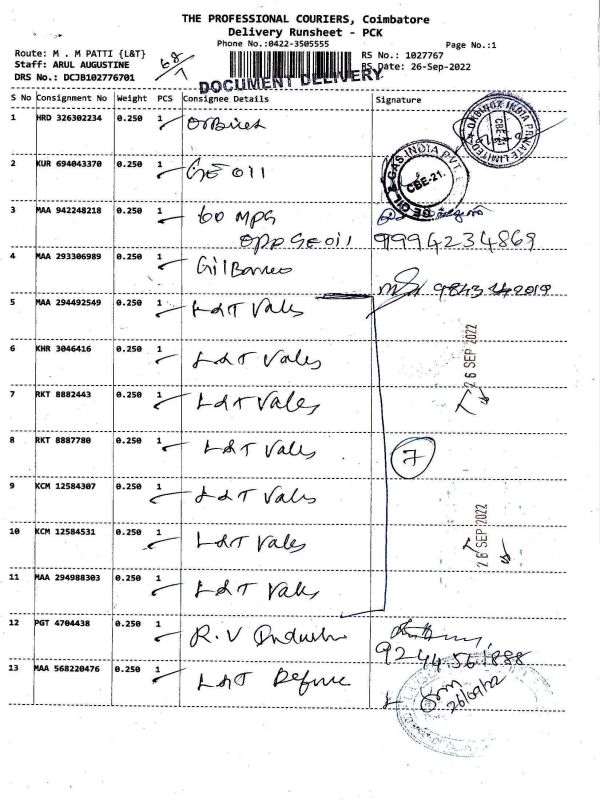 THE PROFESSIONAL COURIERS, Coimbatore
Delivery Runsheet - PCK
Phone No.:0422-3505555
Page No.:1
Route: M . M PATTI {L&T}
RS No.: 1027767
Staff: ARUL AUGUSTINE
68/7
RS Date: 26-Sep-2022
DRS No.: DCJB102776701
DOCUMENT DELIVERY
S No Consignment No Weight PCS Consignee Details Signature
1 HRD 326302234 0.250 1 ORBINOX INDIA PRIVATE LIMITED CBE-21
2 KUR 694043370 0.250 1 GE Oil GE OIL & GAS INDIA PVT. CBE-21.
3 MAA 942248218 0.250 1 60 MPG
opp GE Oil 9994234869
4 MAA 293306989 0.250 1 Gilbarco
5 MAA 294492549 0.250 1 L&T Valves
6 KHR 3046416 0.250 1 L&T Valves 26 SEP 2022
7 RKT 8882443 0.250 1 L&T Valves
8 RKT 8887780 0.250 1 L&T Valves 7
9 KCM 12584307 0.250 1 L&T Valves
10 KCM 12584531 0.250 1 L&T Valves 26 SEP 2022
11 MAA 294988303 0.250 1 L&T Valves
12 PGT 4704438 0.250 1 R.V
13 MAA 568220476 0.250 1 L&T Defence
26/09/22